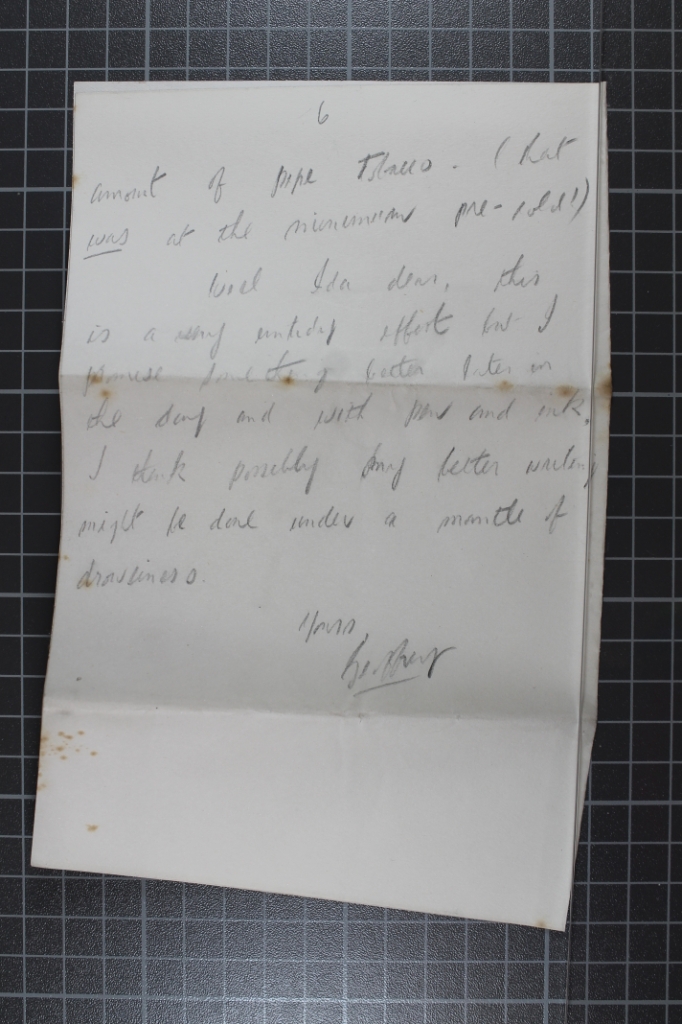 6
amount of pipe Tobacco. (that
was at the minimum pre-sold!)
Well Ida dear, this
is a very untidy effort but I
promise something better later in
the day and with pen and ink.
I think possibly my letter writing
might be done under a mantle of
drowsiness.
Yours,
Geoffrey